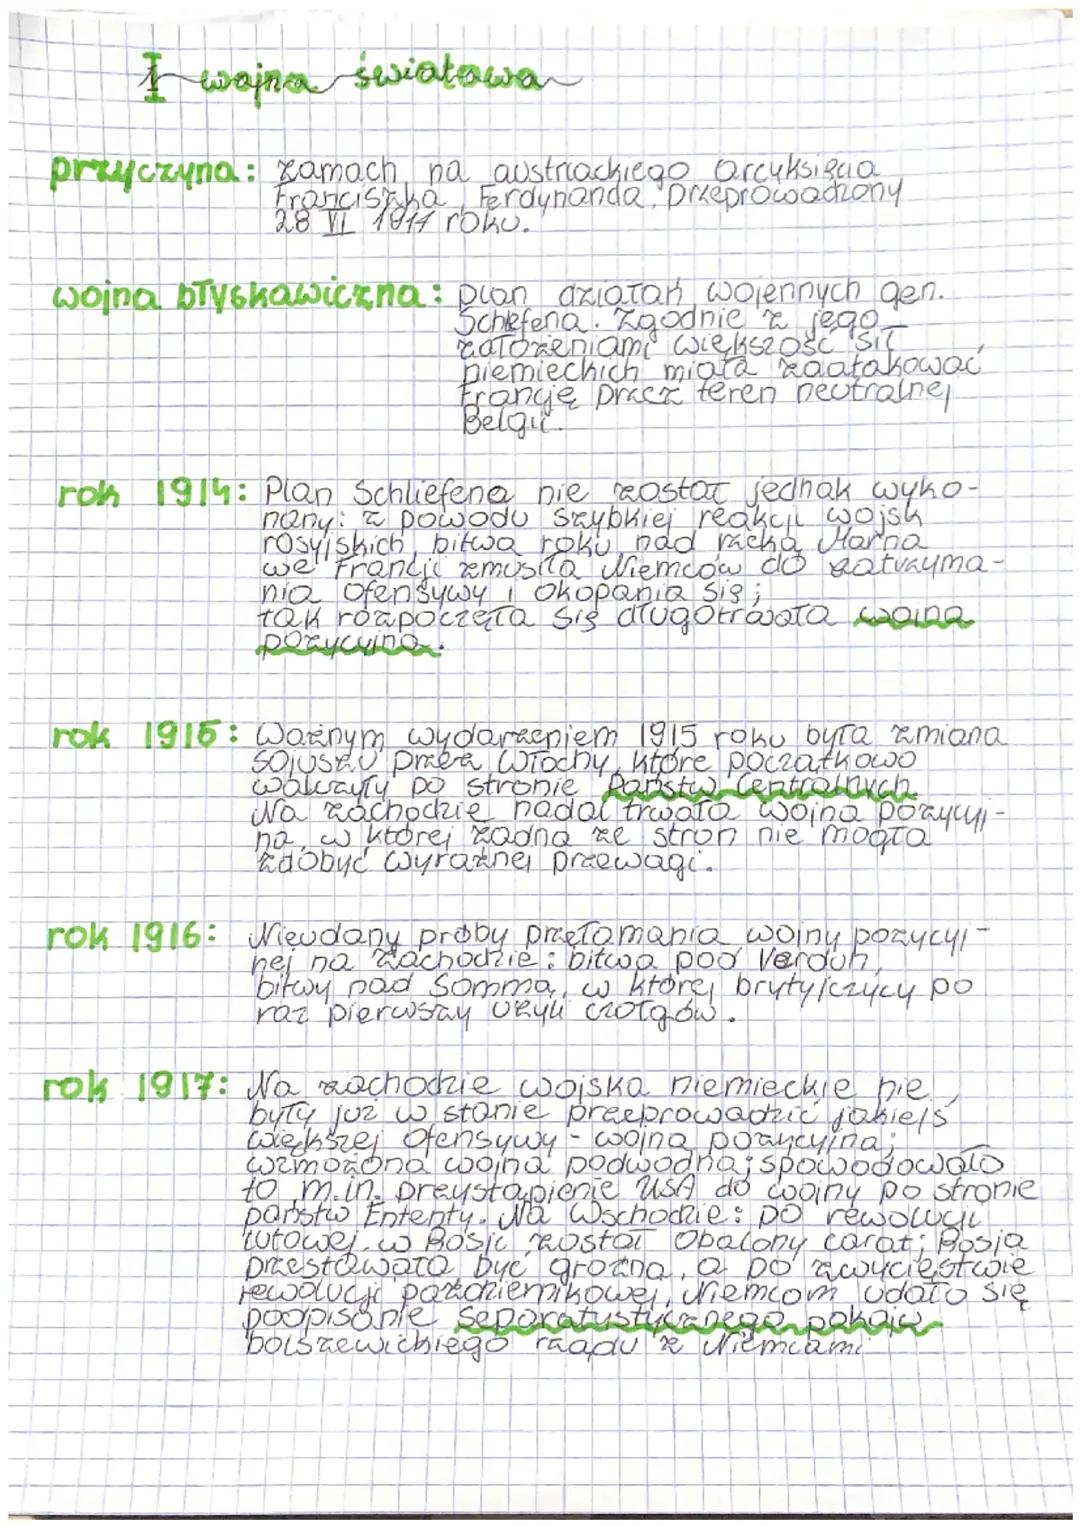 I wojna światowa
przyczyna: zamach na austriackiego arcyksięcia
Franciszka Ferdynanda, przeprowadzony
28 VI 1914 roku.
wojna błyskawiczna: plan działań wojennych gen.
Schlefena. Zgodnie z jego
założeniami większość sił
niemieckich miała zaatakować
Francję przez teren neutralnej
Belgii.
rok 1914: Plan Schliefena nie został jednak wyko-
nany: z powodu szybkiej reakcji wojsk
rosyjskich, bitwa roku nad rzeką Marną
we Francji zmusiła Niemców do zatrzyma-
nia ofensywy i okopania się;
tak rozpoczęła się długotrwała wojna
pozycyjna.
rok 1915: Ważnym wydarzeniem 1915 roku była zmiana
sojuszu przez Włochy, które początkowo
walczyły po stronie Państw Centralnych.
Na zachodzie nadal trwała wojna pozycyj-
na, w której żadna ze stron nie mogła
zdobyć wyraźnej przewagi.
rok 1916: Nieudany próby przełamania wojny pozycyj-
nej na zachodzie: bitwa pod Verdun,
bitwy nad Sommą, w której brytyjczycy po
raz pierwszy użyli czołgów.
rok 1917: Na zachodzie wojska niemieckie nie
były już w stanie przeprowadzić jakiejś
większej ofensywy - wojna pozycyjna;
wzmożona wojna podwodna; spowodowało
to m.in. przystąpienie USA do wojny po stronie
państw Ententy. Na Wschodzie: po rewolucji
lutowej w Rosji został obalony carat; Rosja
przestawała być groźna, a po zwycięstwie
rewolucji październikowej, Niemcom udało się
podpisanie separatystycznego pokoju
bolszewickiego rządu z Niemcami